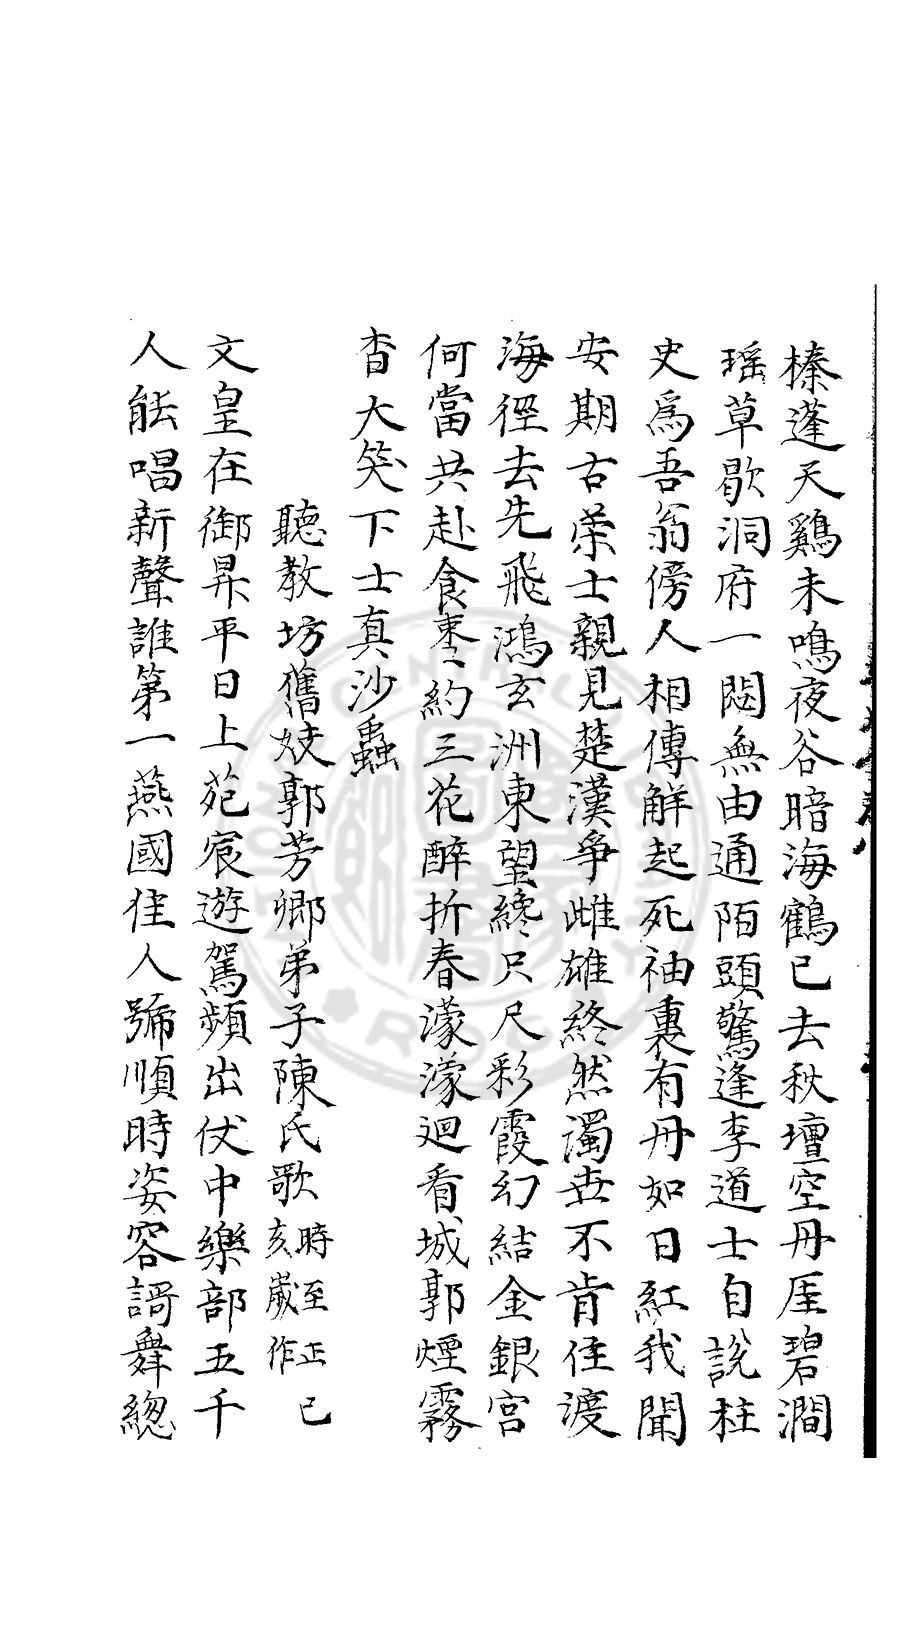 榛蓬天鷄未鳴夜谷暗海鶴已去秋壇空丹厓碧澗
瑶草歇洞府一閟無由通陌頭驚逢李道士自說柱
史爲吾翁傍人相傳解起死袖裏有丹如日紅我聞
安期古榮士親見楚漢爭雌雄終然濁世不肯住渡
海徑去先飛鴻玄洲東望纔只尺彩霞幻結金銀宮
何當共赴食棗約三花醉折春濛濛迴看城郭煙霧
杳大笑下士真沙蟲
聽教坊舊妓郭芳卿弟子陳氏歌時至正已
亥嵗作
文皇在御昇平日上苑宸遊駕頻出仗中樂部五千
人能唱新聲誰第一燕國佳人號順時姿容謌舞總